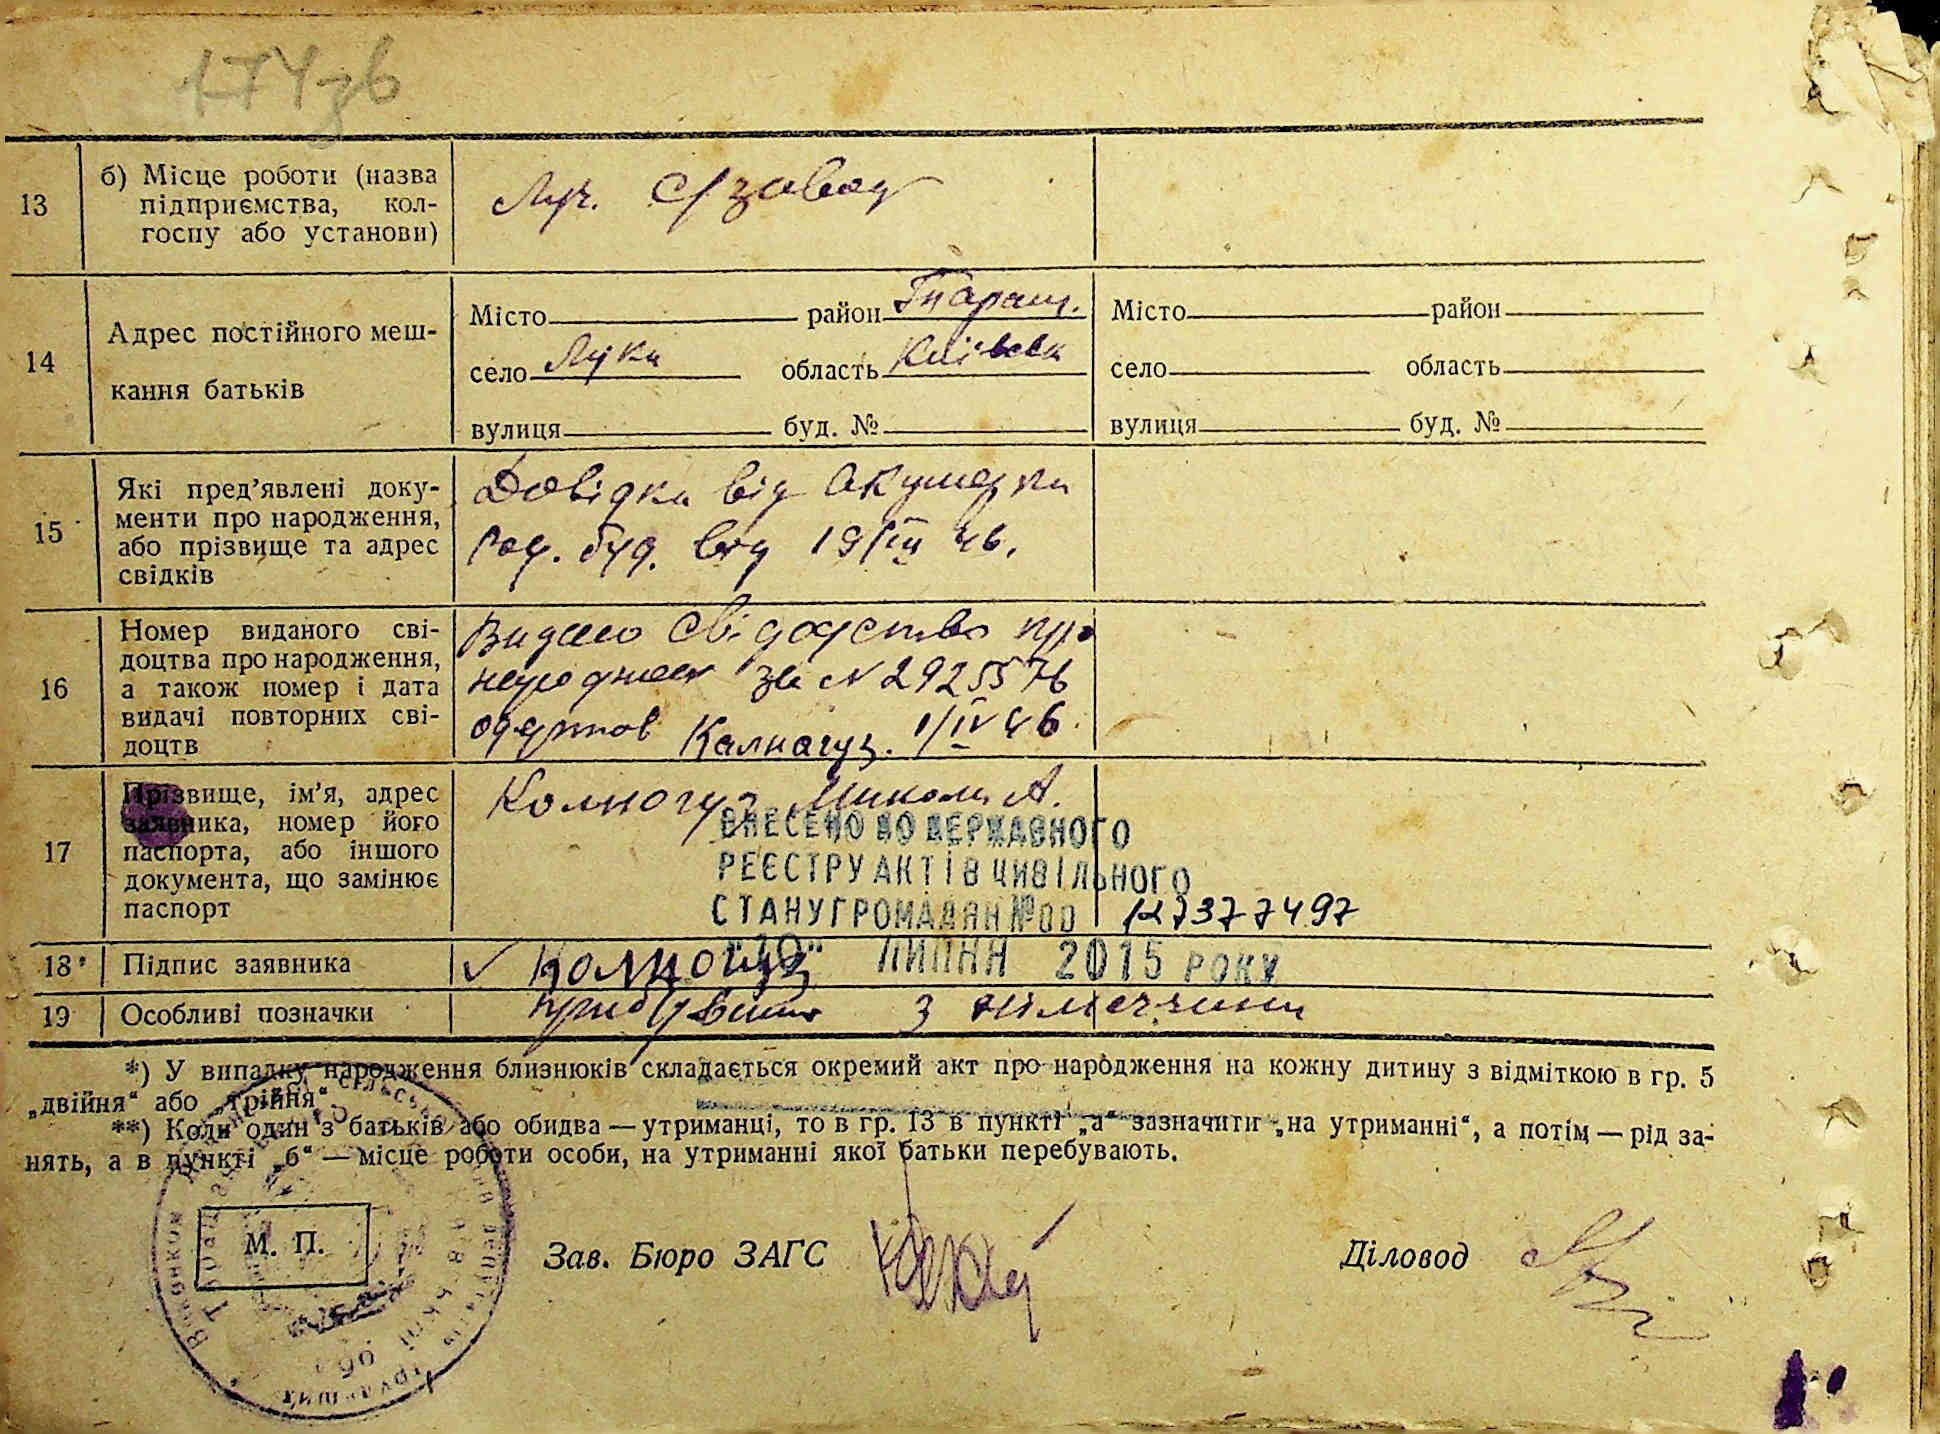 174зв
13
б) Місце роботи (назва
підприємства, кол-
госпу або установи)
Луч. с/завод
14
Адрес постійного меш-
кання батьків
Місто район Таращ.
село Лука область Київськ
вулиця буд. №
Місто район
село область
вулиця буд. №
15
Які пред’явлені доку-
менти про народження,
або прізвище та адрес
свідків
Довідка від акушерки
род. буд. від 19/III 46.
16
Номер виданого сві-
доцтва про народження,
а також номер і дата
видачі повторних сві-
доцтв
Видано свідоцтво про
за № 2925576
Калногуз. 1/IV 46.
17
Прізвище, ім’я, адрес
заявника, номер його
паспорта, або іншого
документа, що замінює
паспорт
Колногуз Микола А.
ВНЕСЕНО ДО ДЕРЖАВНОГО
РЕЄСТРУ АКТІВ ЦИВІЛЬНОГО
СТАНУ ГРОМАДЯН №00 127377497
"10" ЛИПНЯ 2015 РОКУ
18
Підпис заявника
✓ Колногуз
19
Особливі позначки
з німеччини
*) У випадку народження близнюків складається окремий акт про народження на кожну дитину з відміткою в гр. 5
„двійня“ або „трійня“
**) Коли один з батьків або обидва — утриманці, то в гр. 13 в пункті „а“ зазначити „на утриманні“, а потім — рід за-
нять, а в пункті „б“ — місце роботи особи, на утриманні якої батьки перебувають.
М. П.
Зав. Бюро ЗАГС
Діловод